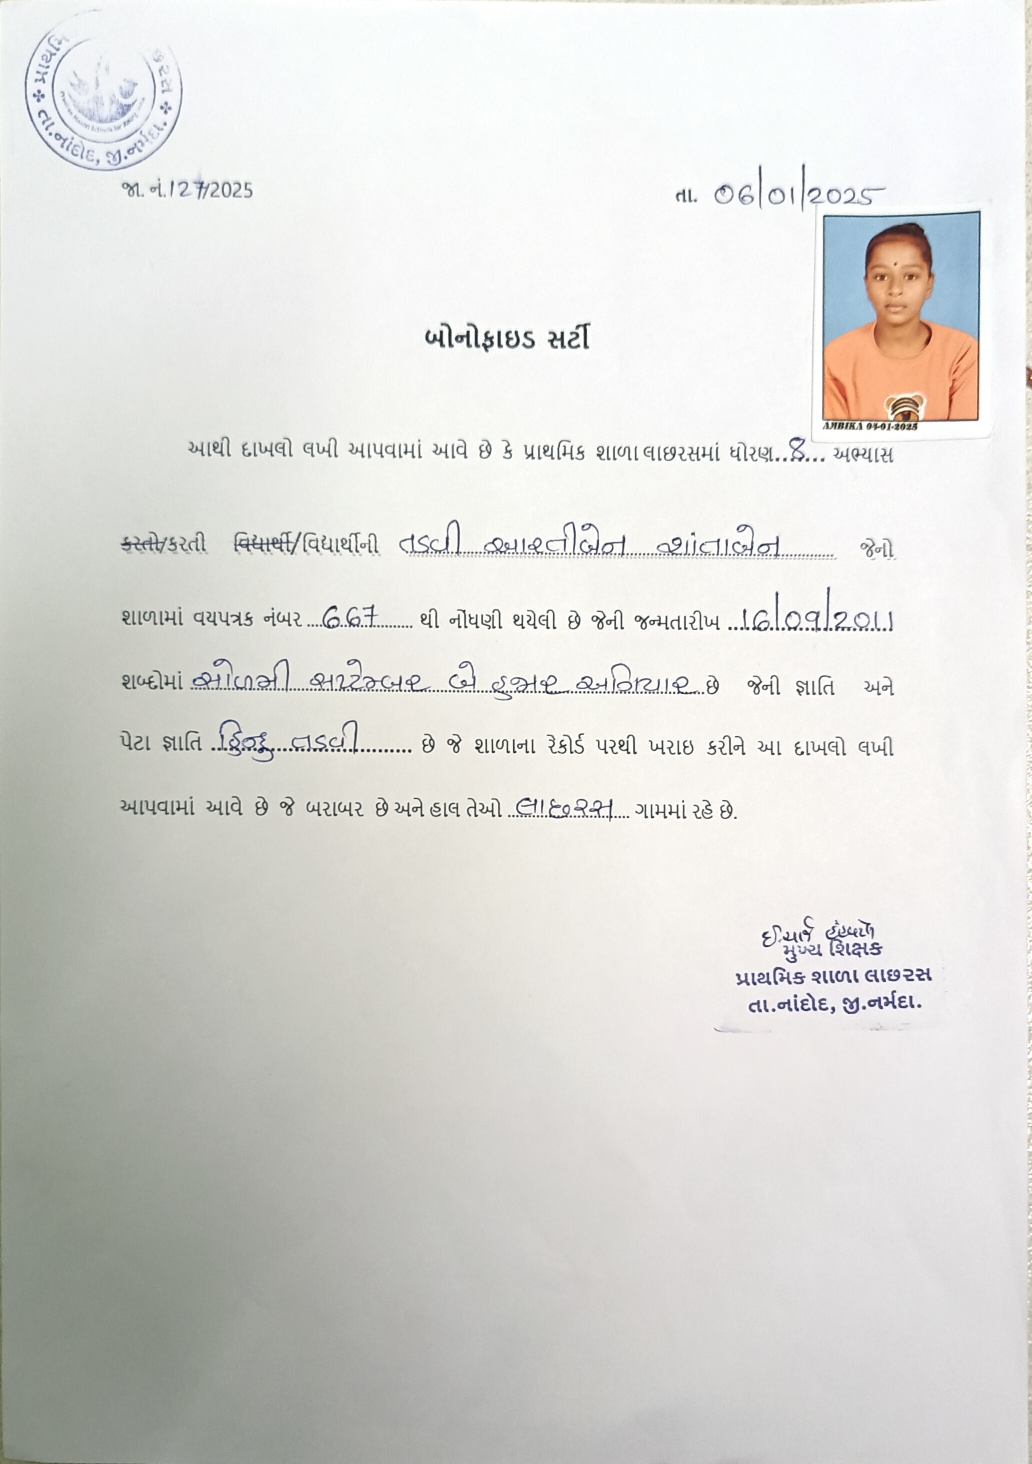 પ્રાથમિ
છરસ
તા.નાંદોદ, જી.નર્મદા.
જા. નં.127/2025
તા. 06/01/2025
બોનોફાઇડ સર્ટી
AMBIKA 04-01-2025
આથી દાખલો લખી આપવામાં આવે છે કે પ્રાથમિક શાળા લાછરસમાં ધોરણ..8... અભ્યાસ
કરતો/કરતી વિદ્યાર્થી/વિદ્યાર્થીની તડવી આરતીબેન શાંતાબેન જેનો
શાળામાં વયપત્રક નંબર ...667....... થી નોંધણી થયેલી છે જેની જન્મતારીખ ..16/09/2011
શબ્દોમાં સોળમી સપ્ટેમ્બર બે હજાર અગિયાર છે જેની જ્ઞાતિ અને
પેટા જ્ઞાતિ ..હિન્દુ તડવી.......... છે જે શાળાના રેકોર્ડ પરથી ખરાઇ કરીને આ દાખલો લખી
આપવામાં આવે છે જે બરાબર છે અને હાલ તેઓ ..લાછરસ.... ગામમાં રહે છે.
મુખ્ય શિક્ષક
પ્રાથમિક શાળા લાછરસ
તા.નાંદોદ, જી.નર્મદા.